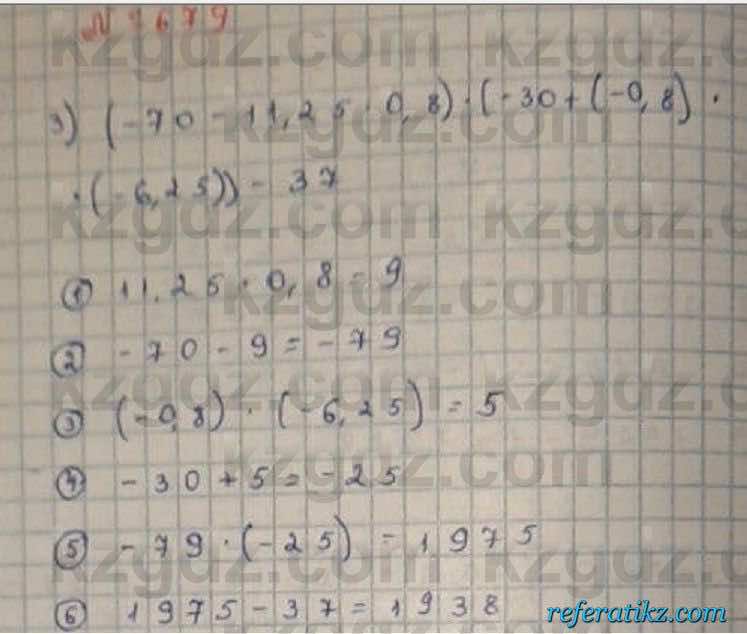 N 1679
3) (-70 - 11,25 · 0,8) · (-30 + (-0,8) ·
· (-6,25)) - 37
① 11,25 · 0,8 = 9
② -70 - 9 = -79
③ (-0,8) · (-6,25) = 5
④ -30 + 5 = -25
⑤ -79 · (-25) = 1975
⑥ 1975 - 37 = 1938
kzgdz.com
referatikz.com